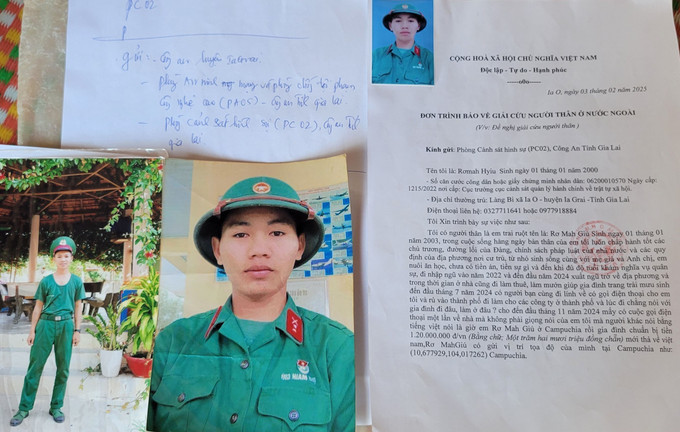 PC02
gửi: - Công an huyện Ia Grai
CỘNG HOÀ XÃ HỘI CHỦ NGHĨA VIỆT NAM
Độc lập - Tự do - Hạnh phúc
Ia O, ngày 03 tháng 02 năm 2025
ĐƠN TRÌNH BÁO VỀ GIẢI CỨU NGƯỜI THÂN Ở NƯỚC NGOÀI
(V/v: Đề nghị giải cứu người thân)
Kính gửi: Phòng Cảnh sát hình sự (PC02), Công An Tỉnh Gia Lai
Tên tôi là: Rơmah Hyiu Sinh ngày 01 tháng 01 năm 2000
- Số căn cước công dân hoặc giấy chứng minh nhân dân: 06200010570 Ngày cấp:
1215/2022 nơi cấp: Cục trưởng cục cảnh sát quản lý hành chính về trật tự xã hội.
- Địa chỉ thường trú: Làng Bi xã Ia O - huyện Ia Grai -Tỉnh Gia Lai
Điện thoại liên hệ: 0327711641 hoặc 0977918884
Tôi Xin trình bày sự việc như sau:
Tôi có người thân là em trai ruột tên là: Rơ Mah Giú Sinh ngày 01 tháng 01
năm 2003, trong cuộc sống hàng ngày bản thân của em tôi luôn chấp hành tốt các
chủ trương, đường lối của Đảng, chính sách pháp luật của nhà nước và các quy
định của địa phương nơi cư trú, từ nhỏ sinh sống cùng với mẹ già và Anh chị, em
nuôi ăn học, chưa có tiền án, tiền sự gì và đến khi đủ độ tuổi khám nghĩa vụ quân
sự, đi nhập ngũ vào năm 2022 và đến đầu năm 2024 xuất ngũ trở về địa phương và
trong thời gian ở nhà cũng đi làm thuê, làm mướn giúp gia đình trang trải mưu sinh
đến đầu tháng 7 năm 2024 có người bạn cùng đi lính về có gọi điện thoại cho em
tôi và rủ vào thành phố đi làm cho các công ty ở thành phố và lúc đi chẳng nói với
gia đình đi đâu, làm ở đâu ? cho đến đầu tháng 11 năm 2024 mấy có cuộc gọi điện
thoại một lần về nhà mà không phải giọng nói của em tôi mà người khác nói bằng
tiếng việt nói là giờ em Rơ Mah Giú ở Campuchia rồi gia đình chuẩn bị tiền
120.000.000 đ/vn (Bằng chữ; Một trăm hai mươi triệu đồng chẵn) mới thả về việt
nam,Rơ MahGiú có gửi vị trí tọa độ của mình tại Campuchia như:
(10,677929,104,017262) Campuchia.